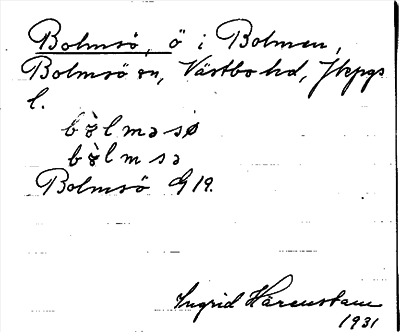 Bolmsö, ö i Bolmen,
Bolmsö sn, Västbo hd, Jkpgs
l.
bòlmasø
bòlmsə
Bolmsö G 19.
Ingrid Härenstam
1931